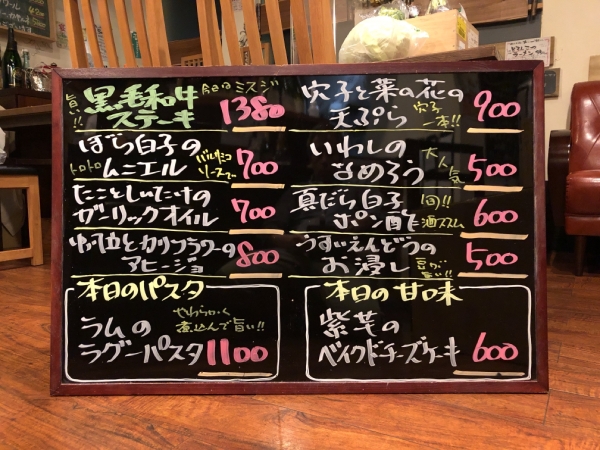 旨い!!
黒毛和牛
今日はミスジ
ステーキ
1380
ぼら白子の
トロトロ
ムニエル
バルサミコ
ソースで
700
たことしいたけの
ガーリックオイル
700
カリフラワーの
アヒージョ
800
本日のパスタ
やわらかく
煮込んで旨い!!
ラムの
ラグーパスタ
1100
穴子と菜の花の
天ぷら
穴子
一本!!
900
いわしの
なめろう
大人気
500
真だら白子
ポン酢
旬!!
酒ススム
600
うすいえんどうの
お浸し
豆が
旨い!!
500
本日の甘味
紫芋の
ベイクドチーズケーキ
600